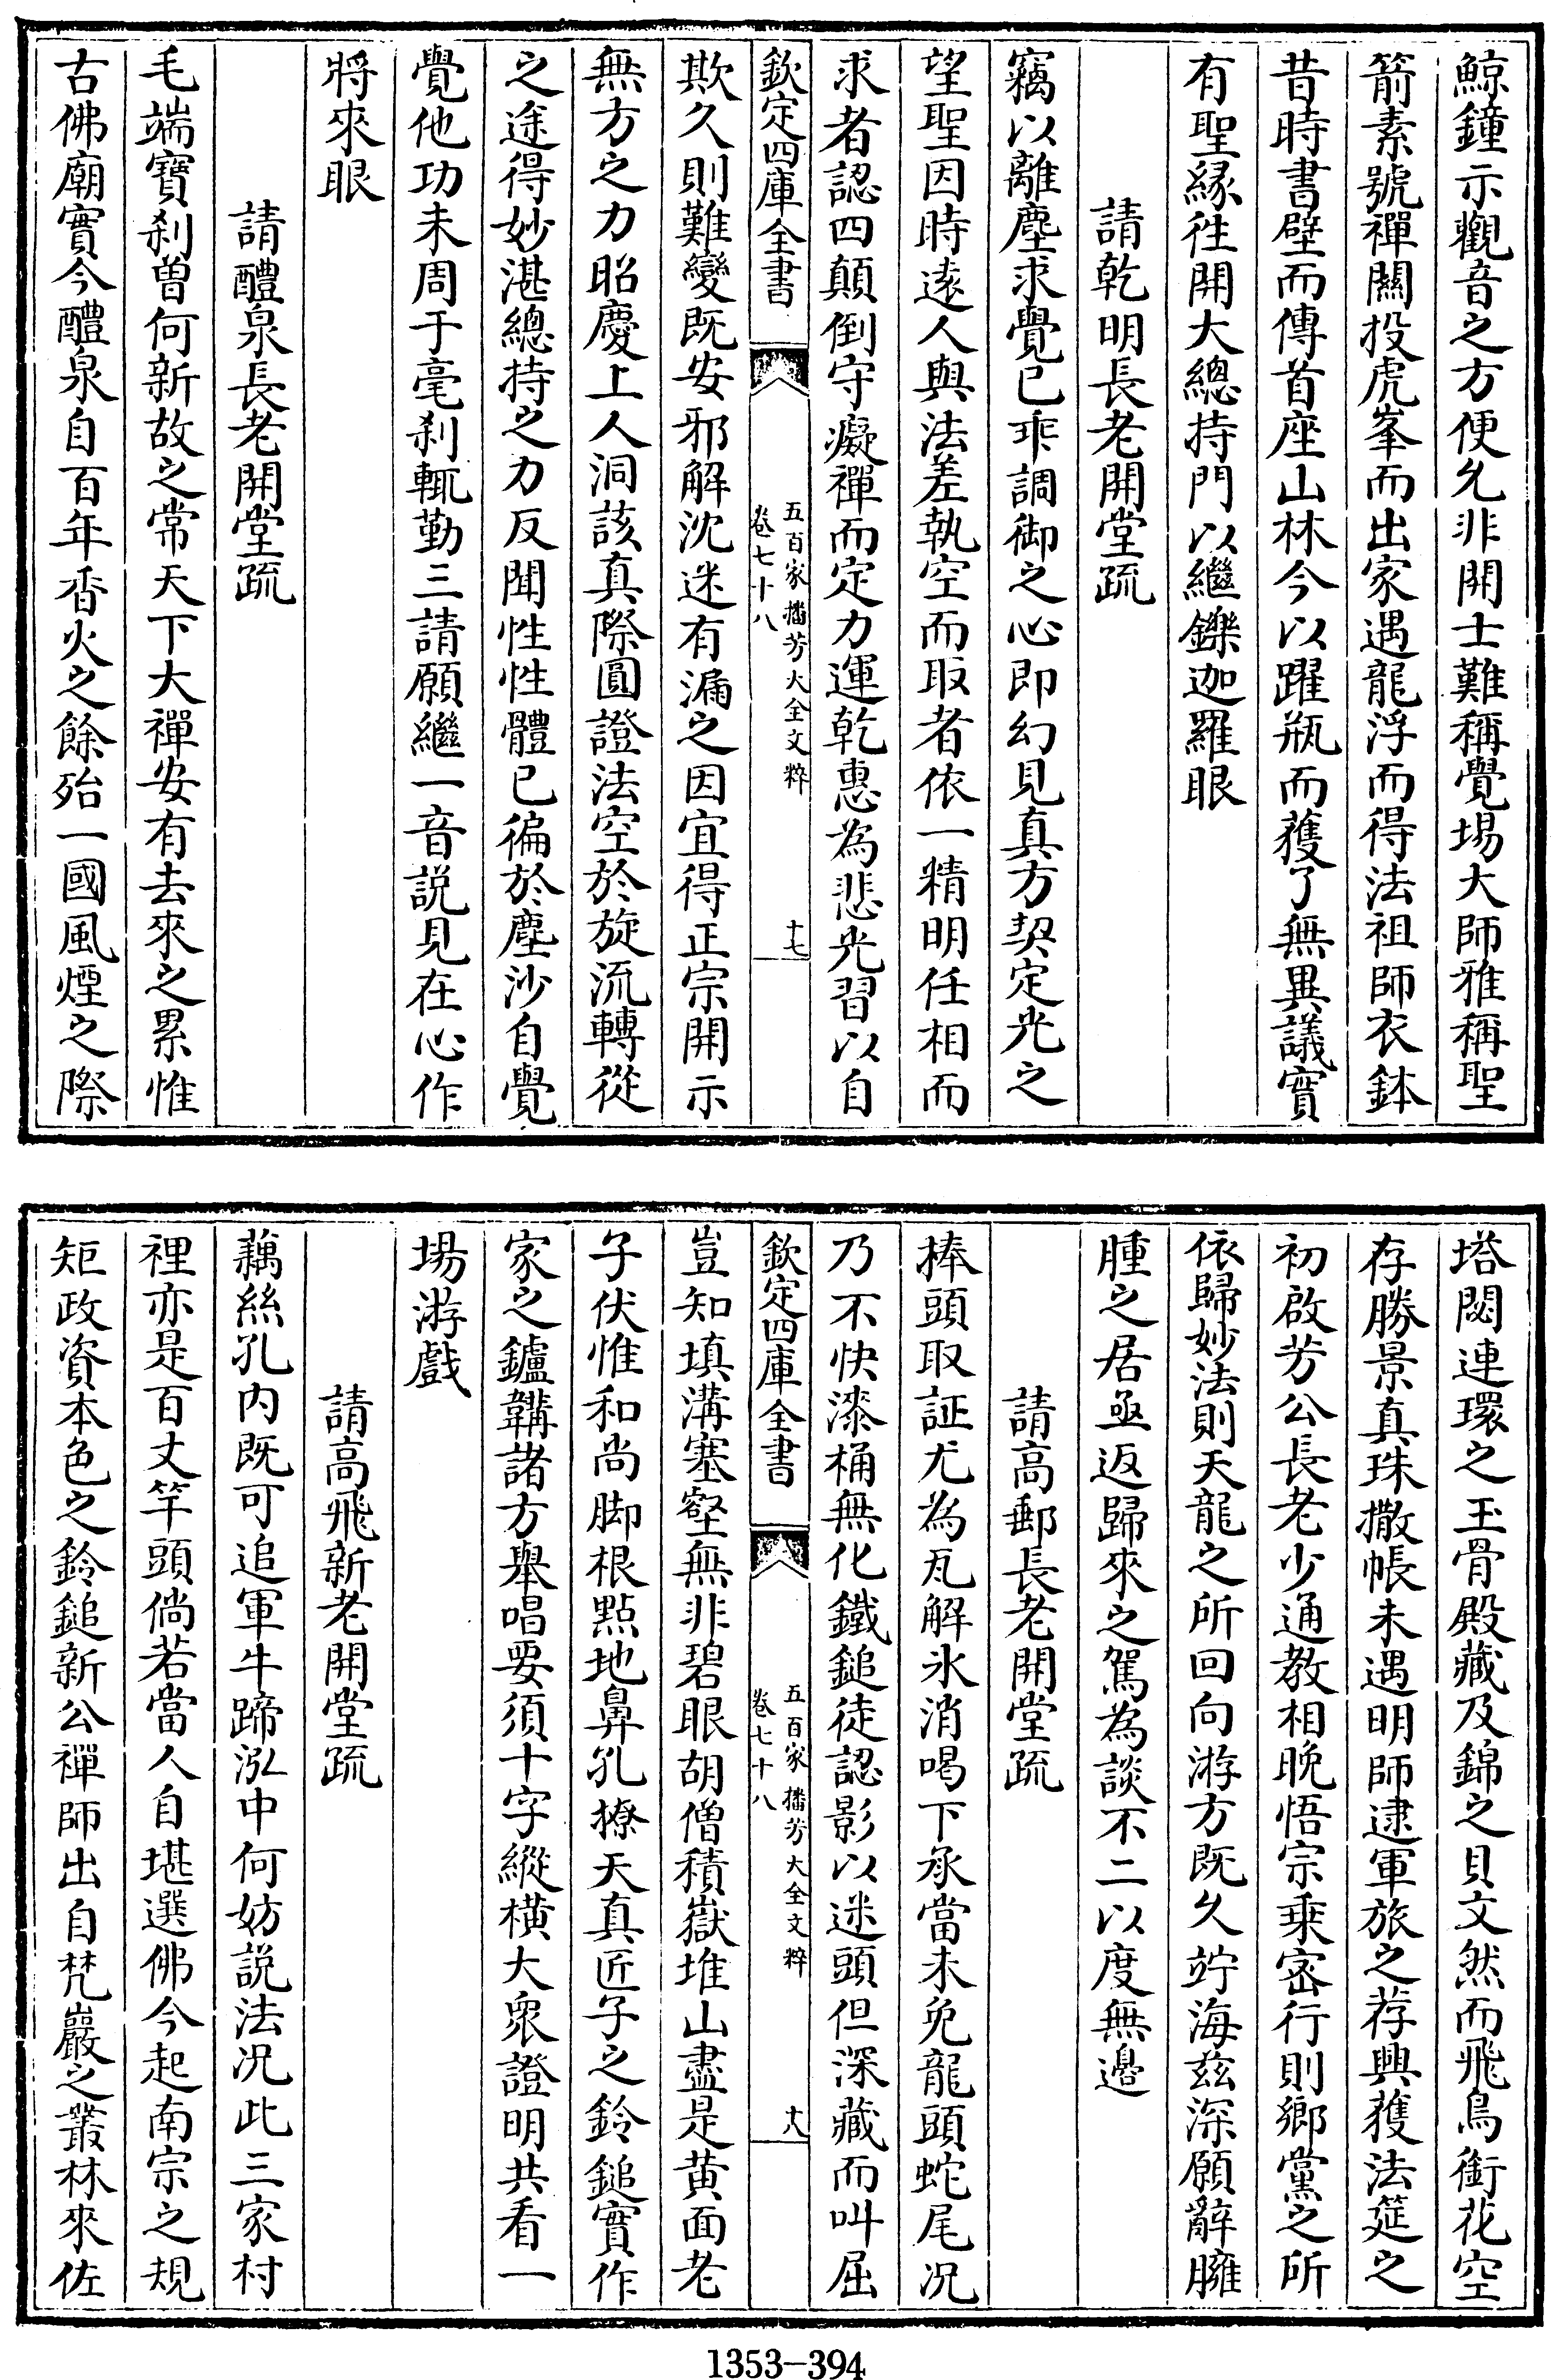 鯨鐘示觀音之方便允非開士難稱覺場大師雅稱聖
箭素號禪關投虎峯而出家遇龍浮而得法祖師衣鉢
昔時書壁而傳首座山林今以躍瓶而獲了無異議實
有聖緣徃開大總持門以繼鑠迦羅眼
請乾明長老開堂疏
竊以離塵求覺已乖調御之心即幻見真方契定光之
望聖因時遠人與法差執空而取者依一精明任相而
求者認四顛倒守癡禪而定力運乾惠為悲光習以自
欽定四庫全書
五百家播芳大全文粹
卷七十八
十七
欺久則難變既安邪解沈迷有漏之因宜得正宗開示
無方之力昭慶上人洞該真際圓證法空於旋流轉從
之途得妙湛總持之力反聞性性體已徧於塵沙自覺
覺他功未周于毫刹輒勤三請願繼一音説見在心作
將來眼
請醴泉長老開堂疏
毛端寶刹曽何新故之常天下大禪安有去來之累惟
古佛廟實今醴泉自百年香火之餘殆一國風煙之際
塔閟連環之玉骨殿藏及錦之貝文然而飛鳥銜花空
存勝景真珠撒帳未遇明師逮軍旅之荐興獲法筵之
初啟芳公長老少通教相晚悟宗乗密行則鄉黨之所
依歸妙法則天龍之所回向游方既久竚海兹深願辭臃
腫之居亟返歸來之駕為談不二以度無邊
請高郵長老開堂疏
棒頭取証尤為瓦解氷消喝下承當未免龍頭蛇尾况
乃不快漆桶無化鐵鎚徒認影以迷頭但深藏而叫屈
欽定四庫全書
五百家播芳大全文粹
卷七十八
十八
豈知填溝塞壑無非碧眼胡僧積嶽堆山盡是黄面老
子伏惟和尚脚根點地鼻孔撩天真匠子之鈴鎚實作
家之鑪鞴諸方舉唱要須十字縱横大衆證明共看一
場游戲
請高飛新老開堂疏
藕絲孔内既可追軍牛蹄泓中何妨説法况此三家村
裡亦是百丈竿頭倘若當人自堪選佛今起南宗之規
矩政資本色之鈴鎚新公禪師出自梵巖之叢林來佐
1353-394